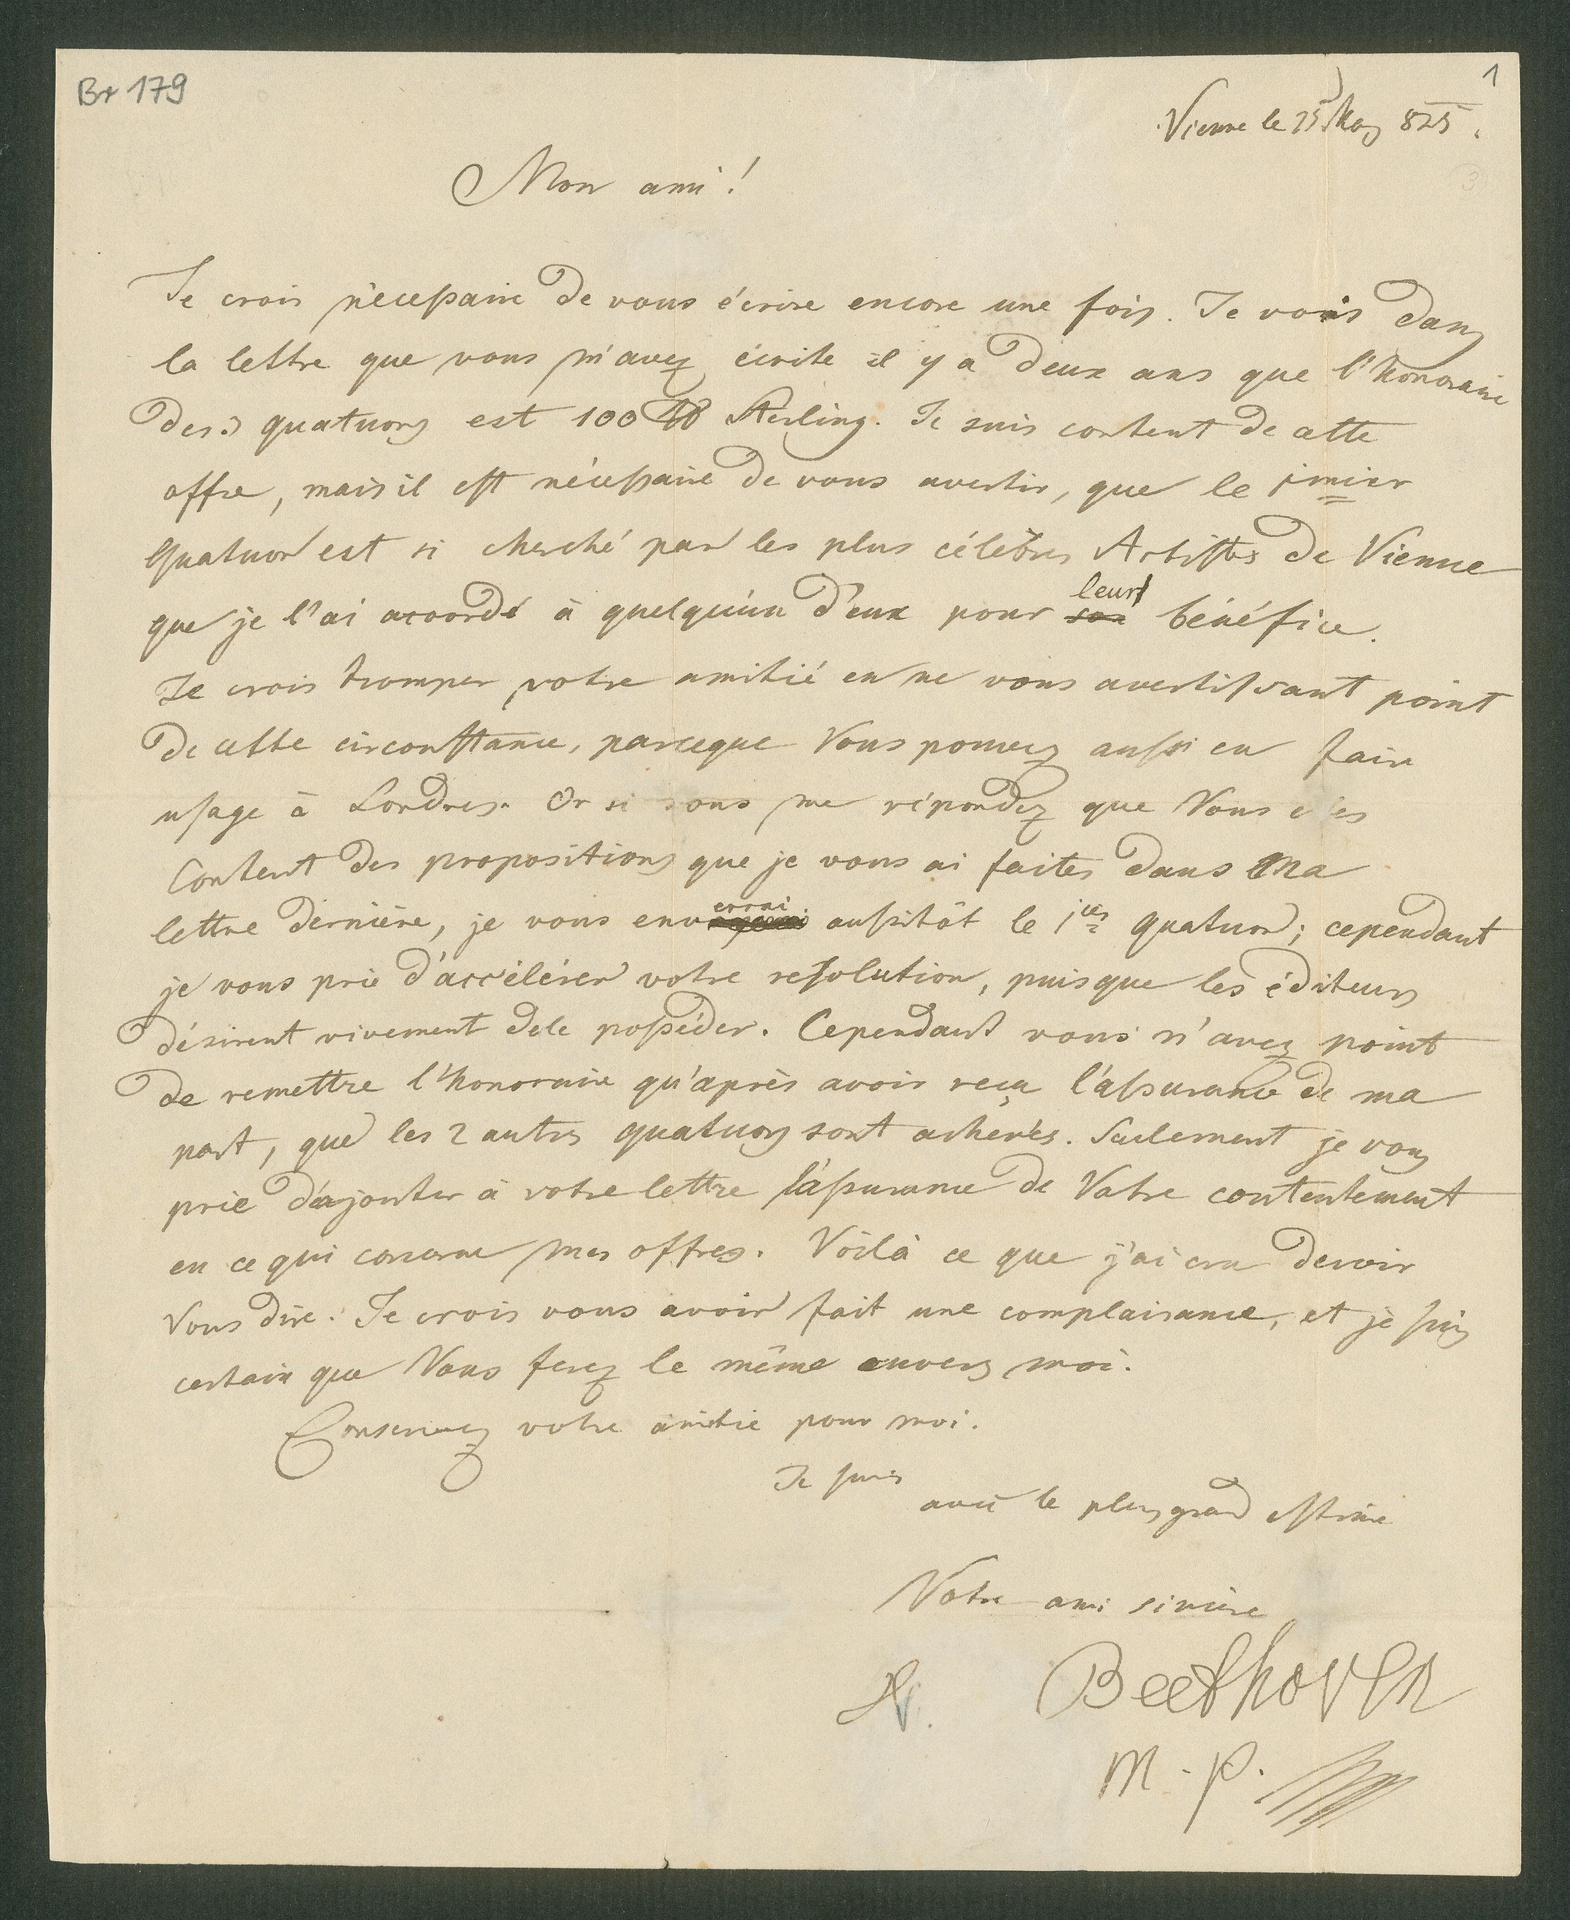 Br 179
1
Vienne le 25 Mars 825.
3
Mon ami!
Je crois nécessaire de vous écrire encore une fois. Je vois dans
la lettre que vous m'avez écrite il y a deux ans que l'honoraire
des quatuors est 100 Sterling. Je suis content de cette
offre, mais il est nécessaire de vous avertir, que le 1mier
Quatuor est si cherché par les plus célébres Artistes de Vienne
que je l'ai acordé à quelqu'un d'eux pour son leur bénéfice.
Je crois tromper votre amitié en ne vous avertissant point
de cette circonstance, parceque Vous pouvez aussi en faire
usage à Londres. Or si vous me répondez que Vous etes
Content des propositions que je vous ai faites dans Ma
lettre dernière, je vous enverrai aussitôt le 1ier quatuor; cependant
je vous prie d'accélérer votre resolution, puisque les éditeurs
désirent vivement de le posséder. Cependant vous n'avez point
de remettre l'honoraire qu'après avoir reçu l'assurance de ma
part, que les 2 autres quatuors sont achevés. Seulement je vous
prie d'ajouter à votre lettre l'assurance de Votre contentement
en ce qui concerne mes offres. Voilà ce que j'ai cru devoir
Vous dire. Je crois vous avoir fait une complaisance, et je suis
certain que Vous ferez le même envers moi.
Conservez votre amitié pour moi.
Je suis
avec le plus grand estime
Votre ami sincère
Beethoven
M. P.